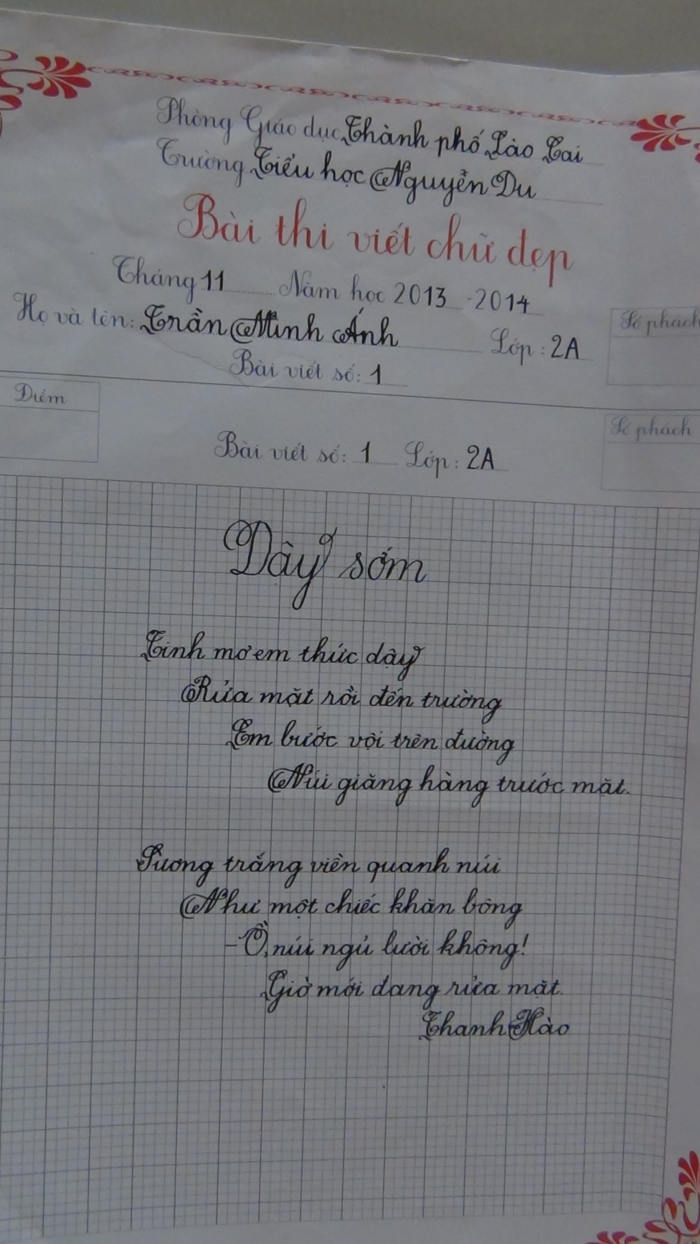 Phòng Giáo dục Thành phố Lào Cai
Trường Tiểu học Nguyễn Du
Bài thi viết chữ đẹp
Tháng 11 Năm học 2013 - 2014
Họ và tên: Trần Minh Ánh Lớp: 2A
Số phách
Bài viết số: 1
Điểm
Số phách
Bài viết số: 1 Lớp: 2A
Dậy sớm
Tinh mơ em thức dậy
Rửa mặt rồi đến trường
Em bước vội trên đường
Núi giăng hàng trước mặt.
Sương trắng viền quanh núi
Như một chiếc khăn bông
- Ồ, núi ngủ lười không!
Giờ mới đang rửa mặt.
Thanh Hào